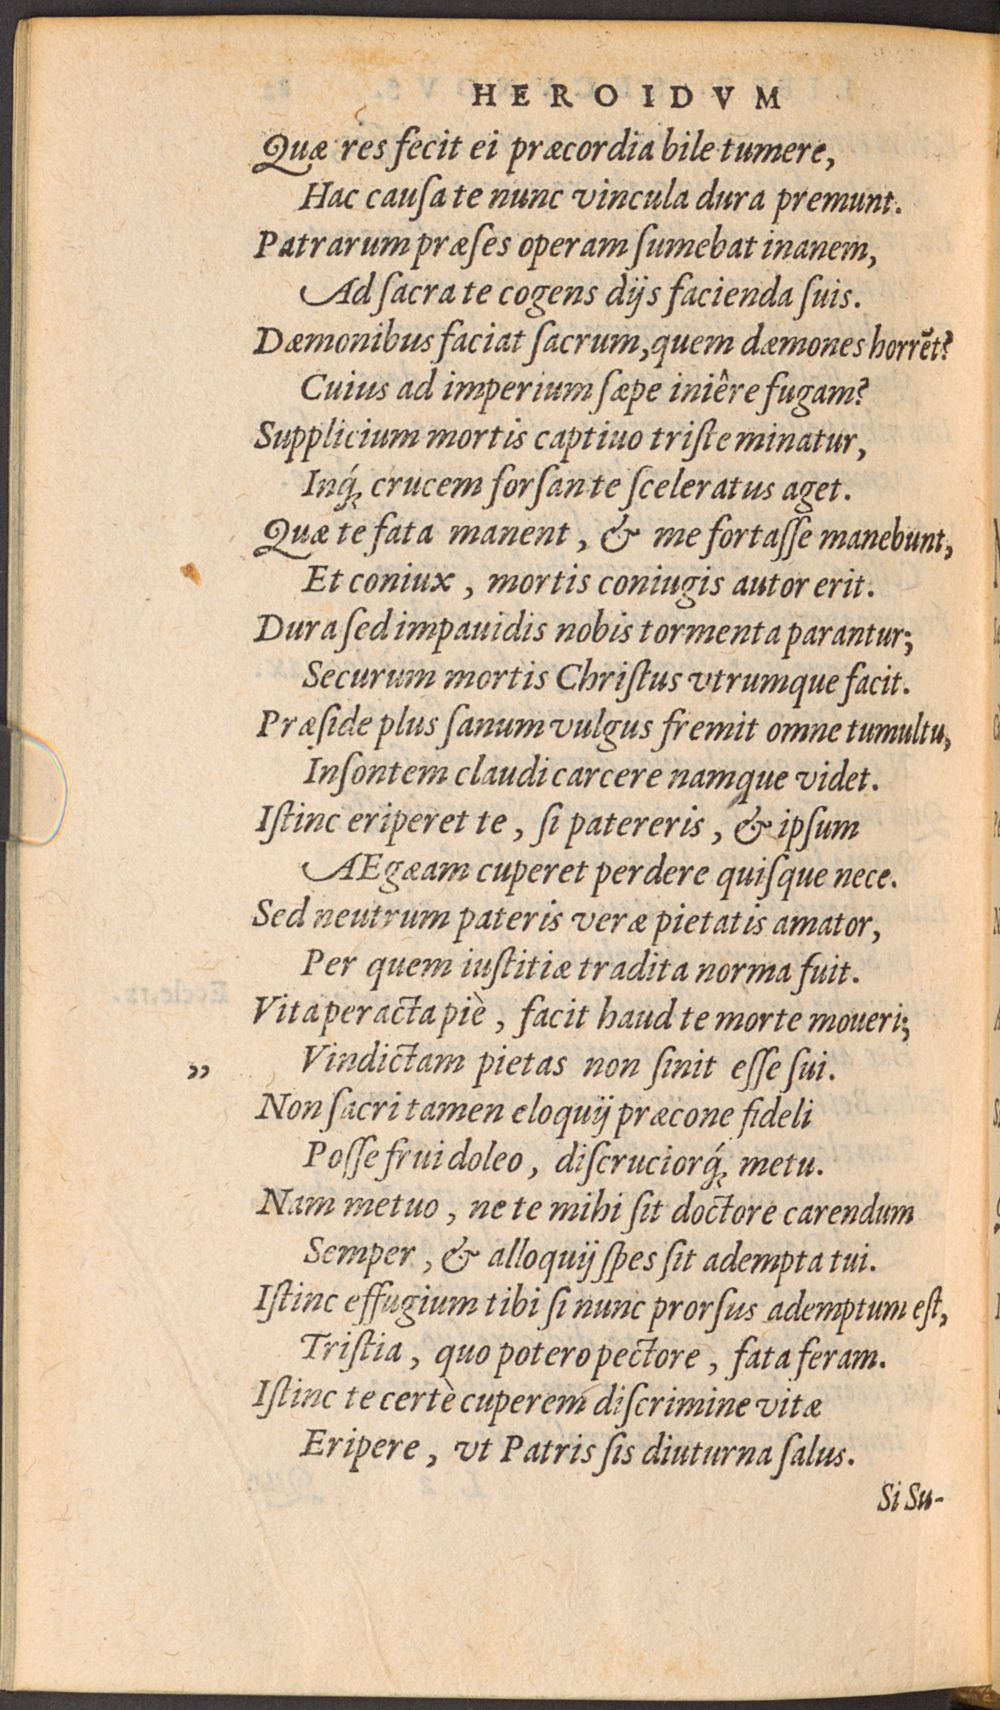 HEROIDVM
Quæ res fecit ei præcordia bile tumere,
Hac cauſa te nunc vincula dura premunt.
Patrarum præſes operam ſumebat inanem,
Ad ſacra te cogens dijs facienda ſuis.
Dæmonibus faciat ſacrum, quem dæmones horrẽt?
Cuius ad imperium ſæpe iniêre fugam?
Supplicium mortis captiuo triſte minatur,
Inq́; crucem forſan te ſceleratus aget.
Quæ te fata manent, & me fortaſſe manebunt,
Et coniux, mortis coniugis autor erit.
Dura ſed impauidis nobis tormenta parantur;
Securum mortis Chriſtus vtrumque facit.
Præſide plus ſanum vulgus fremit omne tumultu,
Inſontem claudi carcere namque videt.
Iſtinc eriperet te, ſi patereris, & ipſum
AEgæam cuperet perdere quiſque nece.
Sed neutrum pateris veræ pietatis amator,
Per quem iuſtitiæ tradita norma fuit.
Vita peracta piè, facit haud te morte moueri;
„ Vindictam pietas non ſinit eſſe ſui.
Non ſacri tamen eloquij præcone fideli
Poſſe frui doleo, diſcruciorq́; metu.
Nam metuo, ne te mihi ſit doctore carendum
Semper, & alloquij ſpes ſit adempta tui.
Iſtinc effugium tibi ſi nunc prorſus ademptum eſt,
Triſtia, quo potero pectore, fata feram.
Iſtinc te certè cuperem diſcrimine vitæ
Eripere, vt Patris ſis diuturna ſalus.
Si Su-